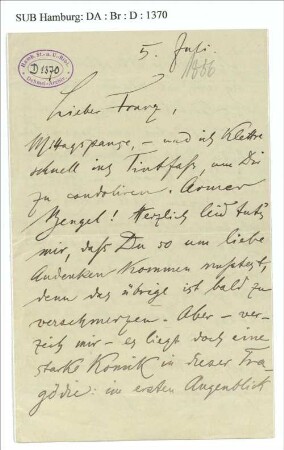 SUB Hamburg: DA : Br : D : 1370
5. Juli.
1886
D 1370
Lieber Franz,
Mittagspause, – und ich klettre
schnell ins Tintfass, um Dir
zu condoliren. Armer
Bengel! Herzlich leid tut's
mir, daß Du so um liebe
Andenken kommen musstest,
denn das übrige ist bald zu
verschmerzen. Aber – ver-
zeih mir – es liegt doch eine
starke Komik in dieser Tra-
gödie: im ersten Augenblick